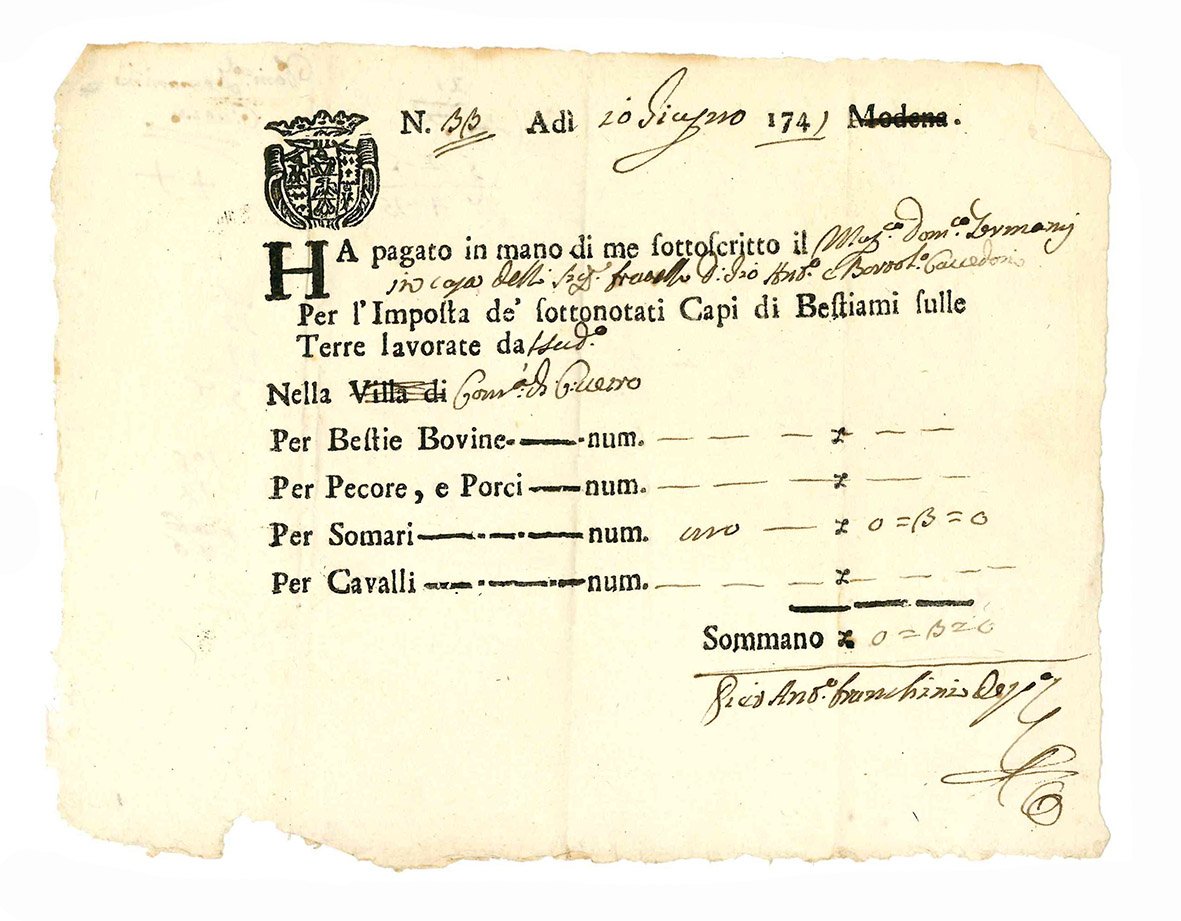 N. 33 Adì 20 Giugno 1741 Modena.
HA pagato in mano di me ſottoſcritto il Mag.co Dom.co Zermani
in casa delli Sig.ri fratelli Ant.o e Bortol.o
Per l'Impoſta de' ſottonotati Capi di Beſtiami ſulle
Terre lavorate da sud.o
Nella Villa di Com.à di
Per Beſtie Bovine num. — — — £ — —
Per Pecore, e Porci num. — — — £ — —
Per Somari num. uno — £ 0=3=0
Per Cavalli num. — — — £ — — —
Sommano £ 0=3=0
Ant.o Franchini Dep.o